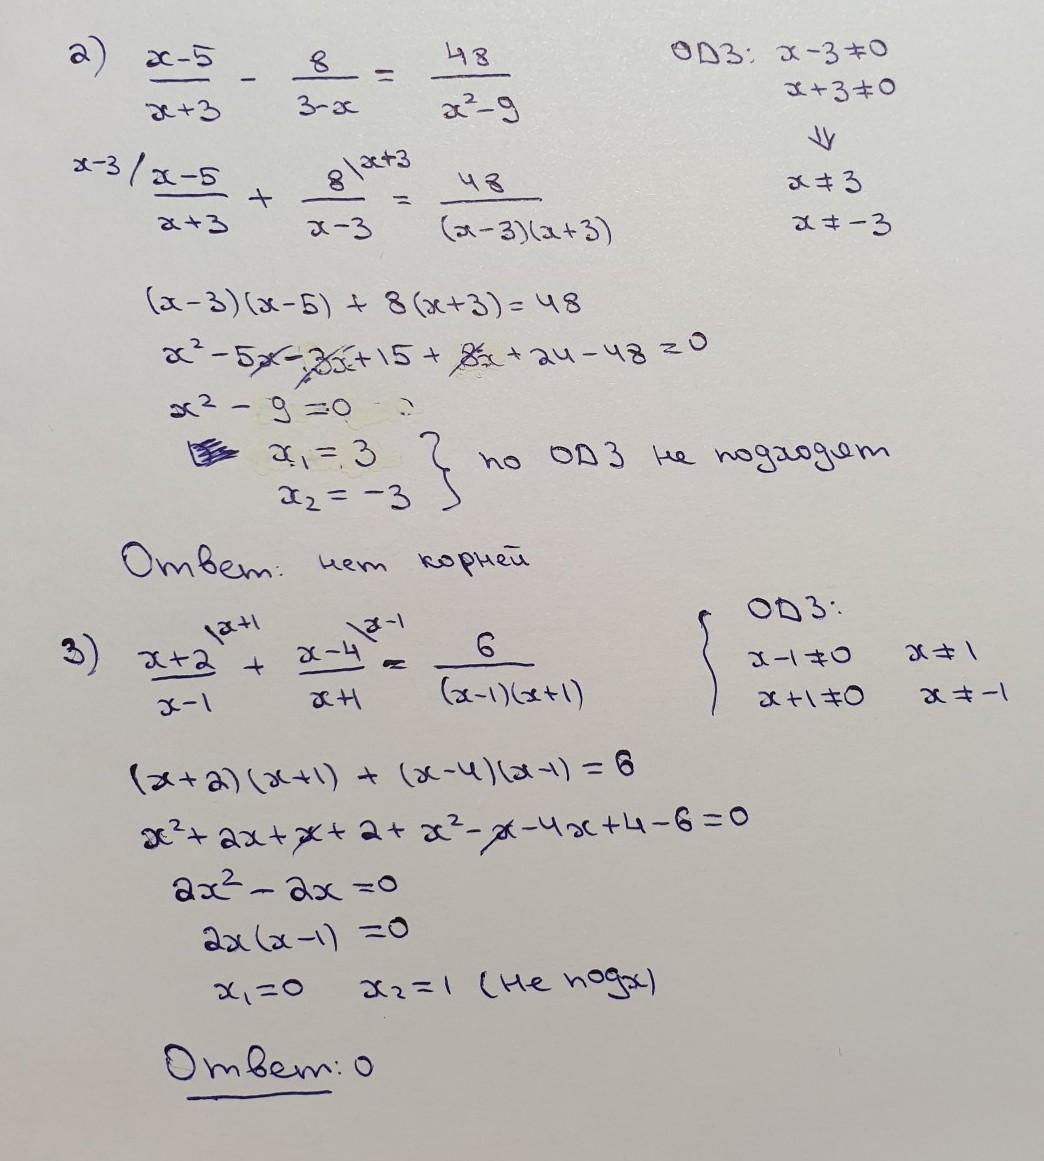 2) (x-5)/(x+3) - 8/(3-x) = 48/(x²-9)
ОДЗ: x-3≠0
x+3≠0
⇓
x≠3
x≠-3
x-3/ (x-5)/(x+3) + 8/(x-3) \x+3 = 48/((x-3)(x+3))
(x-3)(x-5) + 8(x+3) = 48
x² - 5x - 3x + 15 + 8x + 24 - 48 = 0
x² - 9 = 0
x₁ = 3
x₂ = -3 } по ОДЗ не подходят
Ответ: нет корней
3) (x+2)/(x-1) \x+1 + (x-4)/(x+1) \x-1 = 6/((x-1)(x+1))
{ ОДЗ:
x-1≠0 x≠1
x+1≠0 x≠-1
(x+2)(x+1) + (x-4)(x-1) = 6
x² + 2x + x + 2 + x² - x - 4x + 4 - 6 = 0
2x² - 2x = 0
2x(x-1) = 0
x₁ = 0 x₂ = 1 (не подх)
Ответ: 0